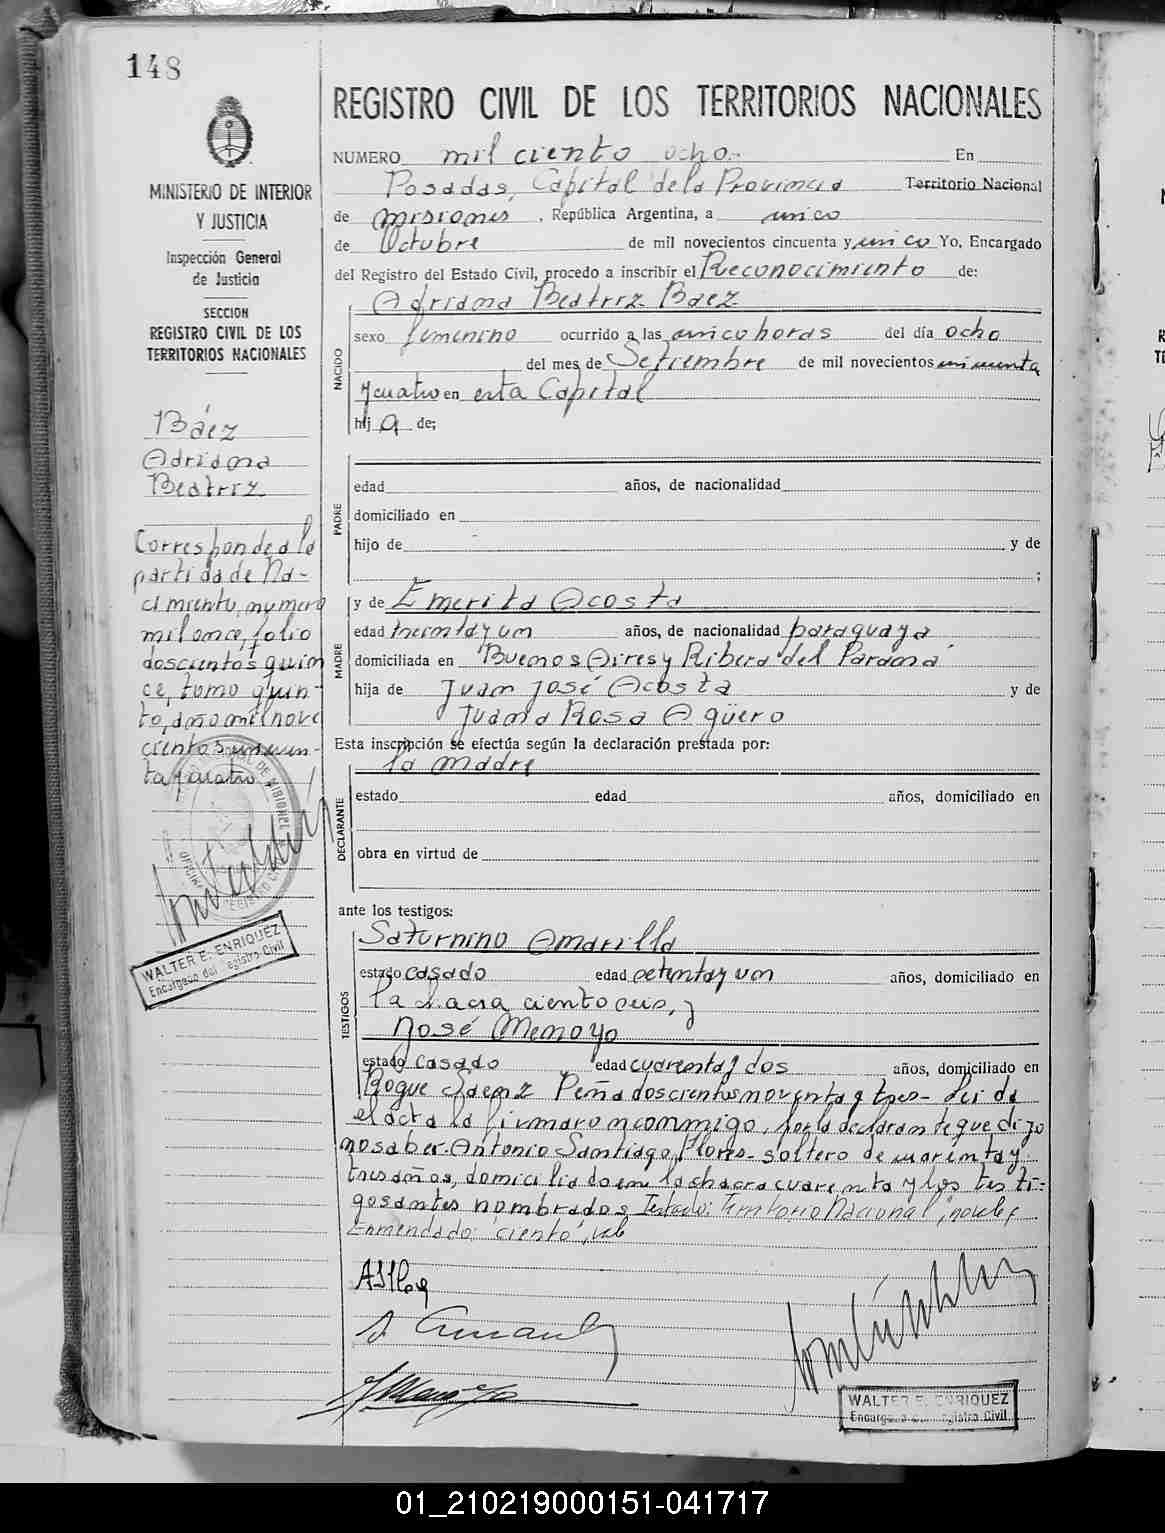 148
REGISTRO CIVIL DE LOS TERRITORIOS NACIONALES
MINISTERIO DE INTERIOR
Y JUSTICIA
Inspección General
de Justicia
SECCION
REGISTRO CIVIL DE LOS
TERRITORIOS NACIONALES
Báez
Adriana
Beatriz
Corresponde a la
partida de Na-
cimiento, numero
mil once, folio
doscientos quin
ce, tomo quin-
to, año mil nove
cientos cincuen-
ta y cuatro.
WALTER E. ENRIQUEZ
Encargado del Registro Civil
NUMERO mil ciento ocho.- En
Posadas, Capital de la Provincia Territorio Nacional
de Misiones, República Argentina, a cinco
de Octubre de mil novecientos cincuenta y cinco Yo, Encargado
del Registro del Estado Civil, procedo a inscribir el Reconocimiento de:
Adriana Beatriz Baez
NACIDO
sexo femenino ocurrido a las cinco horas del día ocho
del mes de Setiembre de mil novecientos cincuenta
y cuatro en esta Capital
hij a de;
PADRE
edad años, de nacionalidad
domiciliado en
hijo de y de
;
MADRE
y de Emerita Acosta
edad treinta y un años, de nacionalidad paraguaya
domiciliada en Buenos Aires y Ribera del Paraná
hija de Juan José Acosta y de
Juana Rosa Agüero
Esta inscripción se efectúa según la declaración prestada por:
la madre
DECLARANTE
estado edad años, domiciliado en
obra en virtud de
ante los testigos:
TESTIGOS
Saturnino Amarilla
estado casado edad setenta y un años, domiciliado en
la chacra ciento seis, y
José Menoyo
estado casado edad cuarenta y dos años, domiciliado en
Roque Sáenz Peña doscientos noventa y tres- Leida
el acta la firmaron conmigo, por la declarante que dijo
no saber- Antonio Santiago Flores- soltero de cuarenta y
tres años, domiciliado en la chacra cuarenta y los testi-
gos antes nombrados. Testado: Territorio Nacional, no vale,
Enmendado: "ciento", vale
WALTER E. ENRIQUEZ
Encargado del Registro Civil
01_210219000151-041717